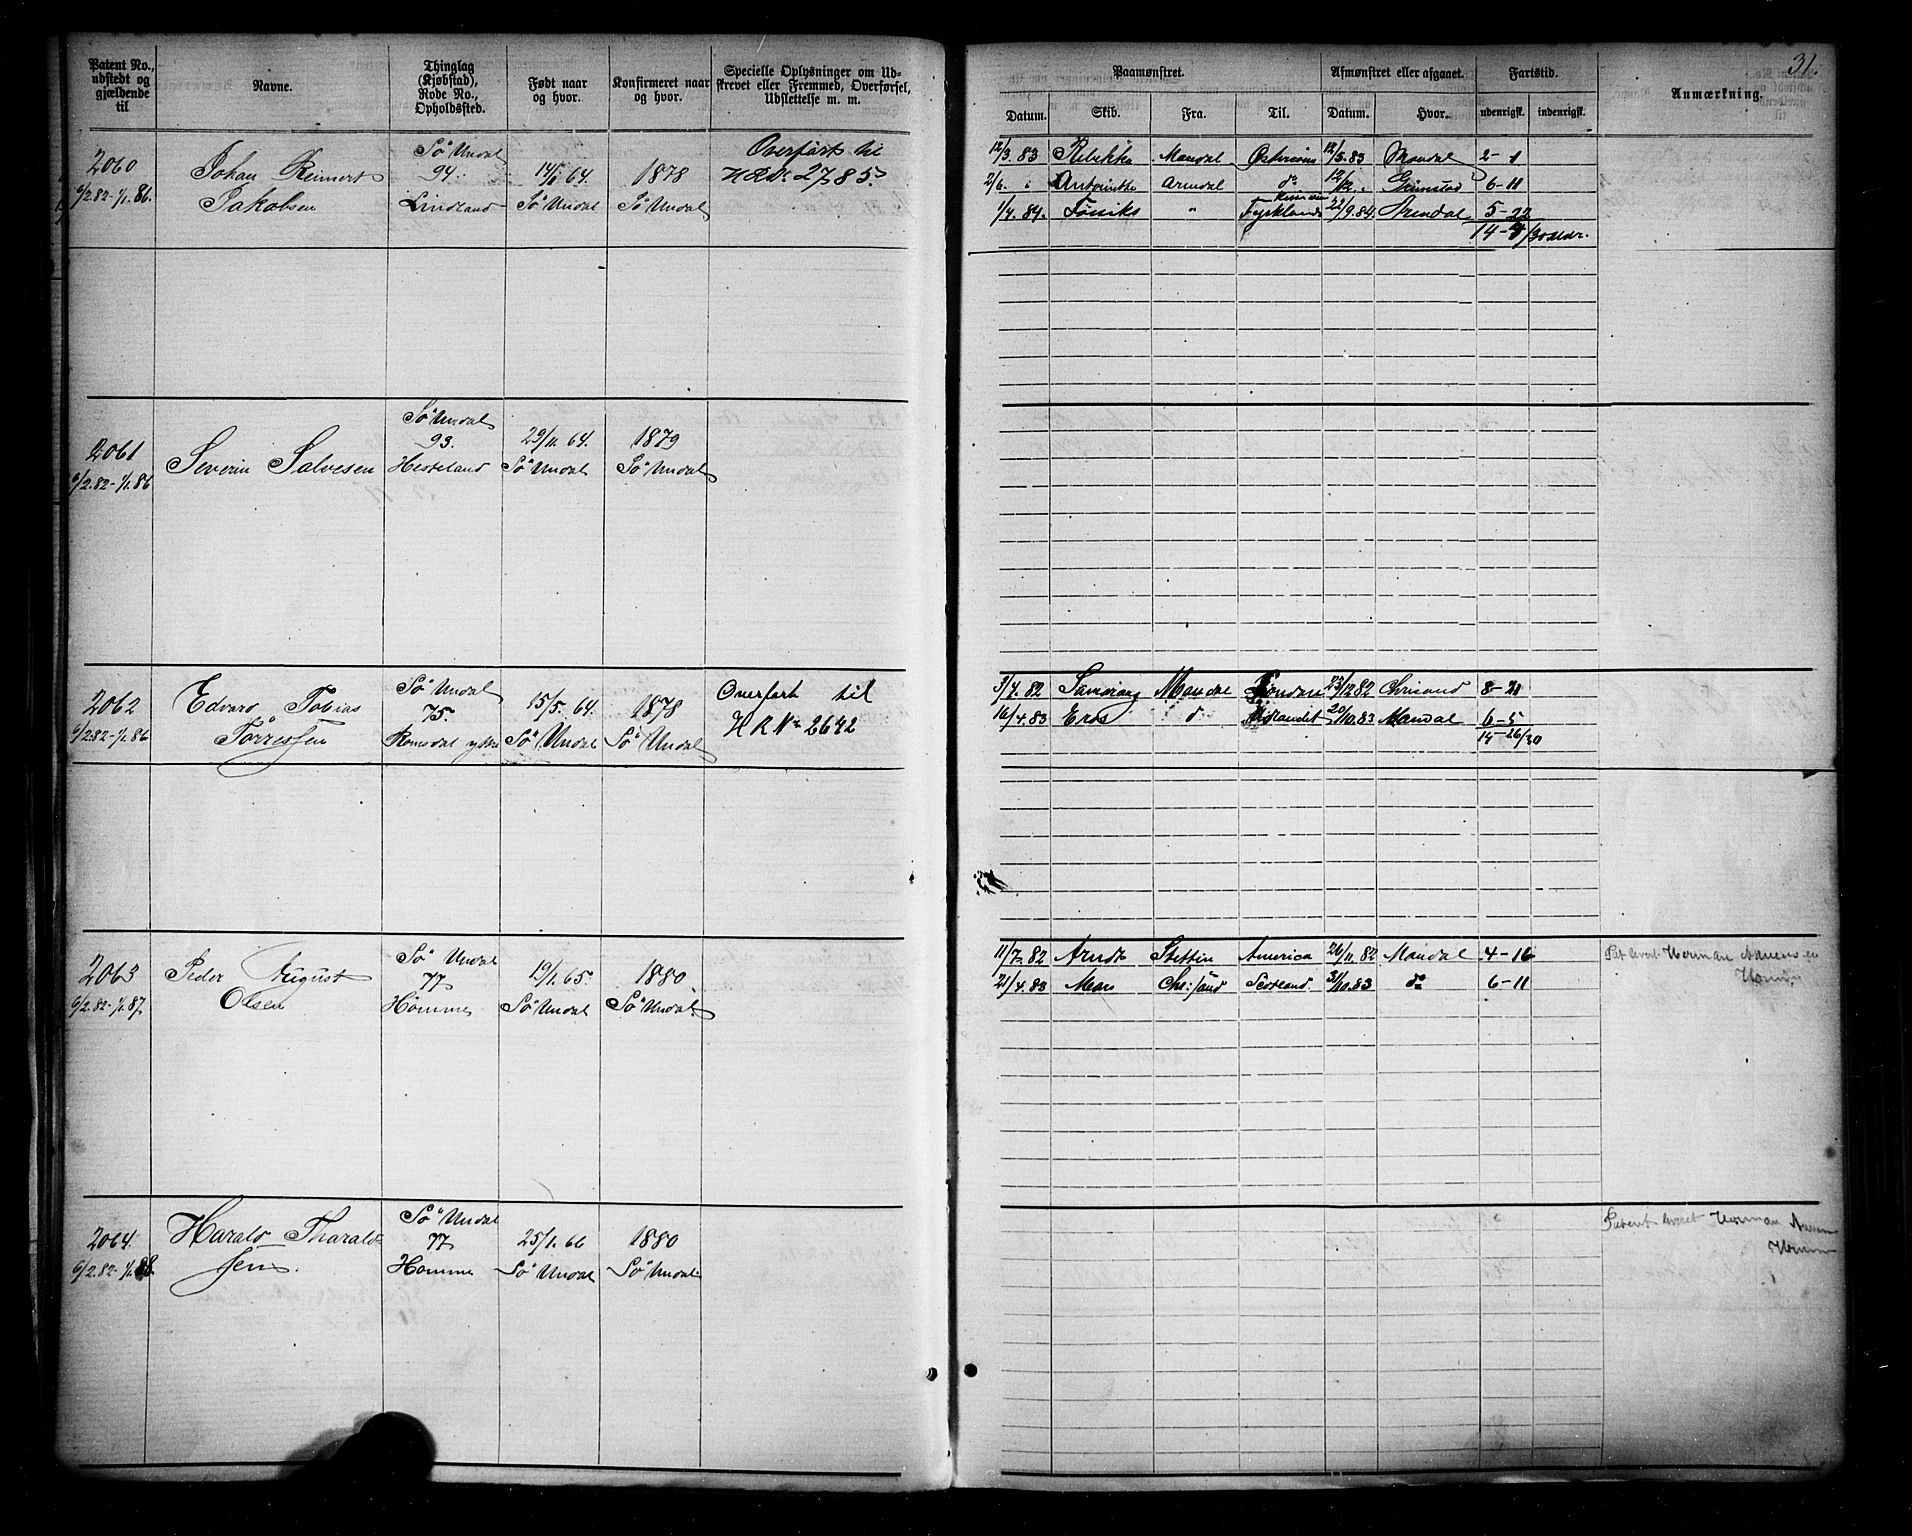 31.
Patent No., udstedt og gjældende til
Navne.
Thinglag (Kjøbstad), Rode No., Opholdssted.
Født naar og hvor.
Konfirmeret naar og hvor.
Specielle Oplysninger om Udskrevet eller Fremmed, Overførsel, Udslettelse m. m.
Paamønstret.
Afmønstret eller afgaaet.
Fartstid.
Anmærkning.
Datum. Skib. Fra. Til. Datum. Hvor. udenrigsk. indenrigsk.
2060
6/2.82-1/1.86.
Johan Reinert
Jakobsen
Sø Undal
94.
Lindland
64.
Sø Undal
1878
Sø Undal
Overført til
2785.
12/3.83 Rebekka Mandal 12/5.83 Mandal 2-1
2/6. " Antoinette Arendal do 12/12. " Grimstad 6-11
1/4.84. Føniks " Tyskland 22/9.84. Arendal 5-22
2061
6/2.82-1/1.86
Severin Salvesen
Sø Undal
93.
Hesteland
29/11.64.
Sø Undal
1879
Sø Undal
2062
6/2.82-1/1.86
Edvard Tobias
Tørressen
Sø Undal
75.
Romsdal ydre
15/5.64.
Sø Undal
1878
Sø Undal
Overført til
H R No 2642
3/4.82 Samarang Mandal Chrisand 8-21
16/4.83 Eros do 20/10.83 Mandal 6-5
14-26/30
2063
6/2.82-1/1.87
Peder August
Olsen
Sø Undal
77
Homme
19/1.65.
Sø Undal
1880.
Sø Undal.
11/7.82 Stettin America 26/11.82 Mandal 4-16
21/4.83 Mars Chr:sand Scotland. 31/10.83 do 6-11
Herman
2064
6/2.82-1/1.88.
Harald Tharald-
sen.
Sø Undal
77
Homme
25/1.66
Sø Undal
1880
Sø Undal
Patent Herman